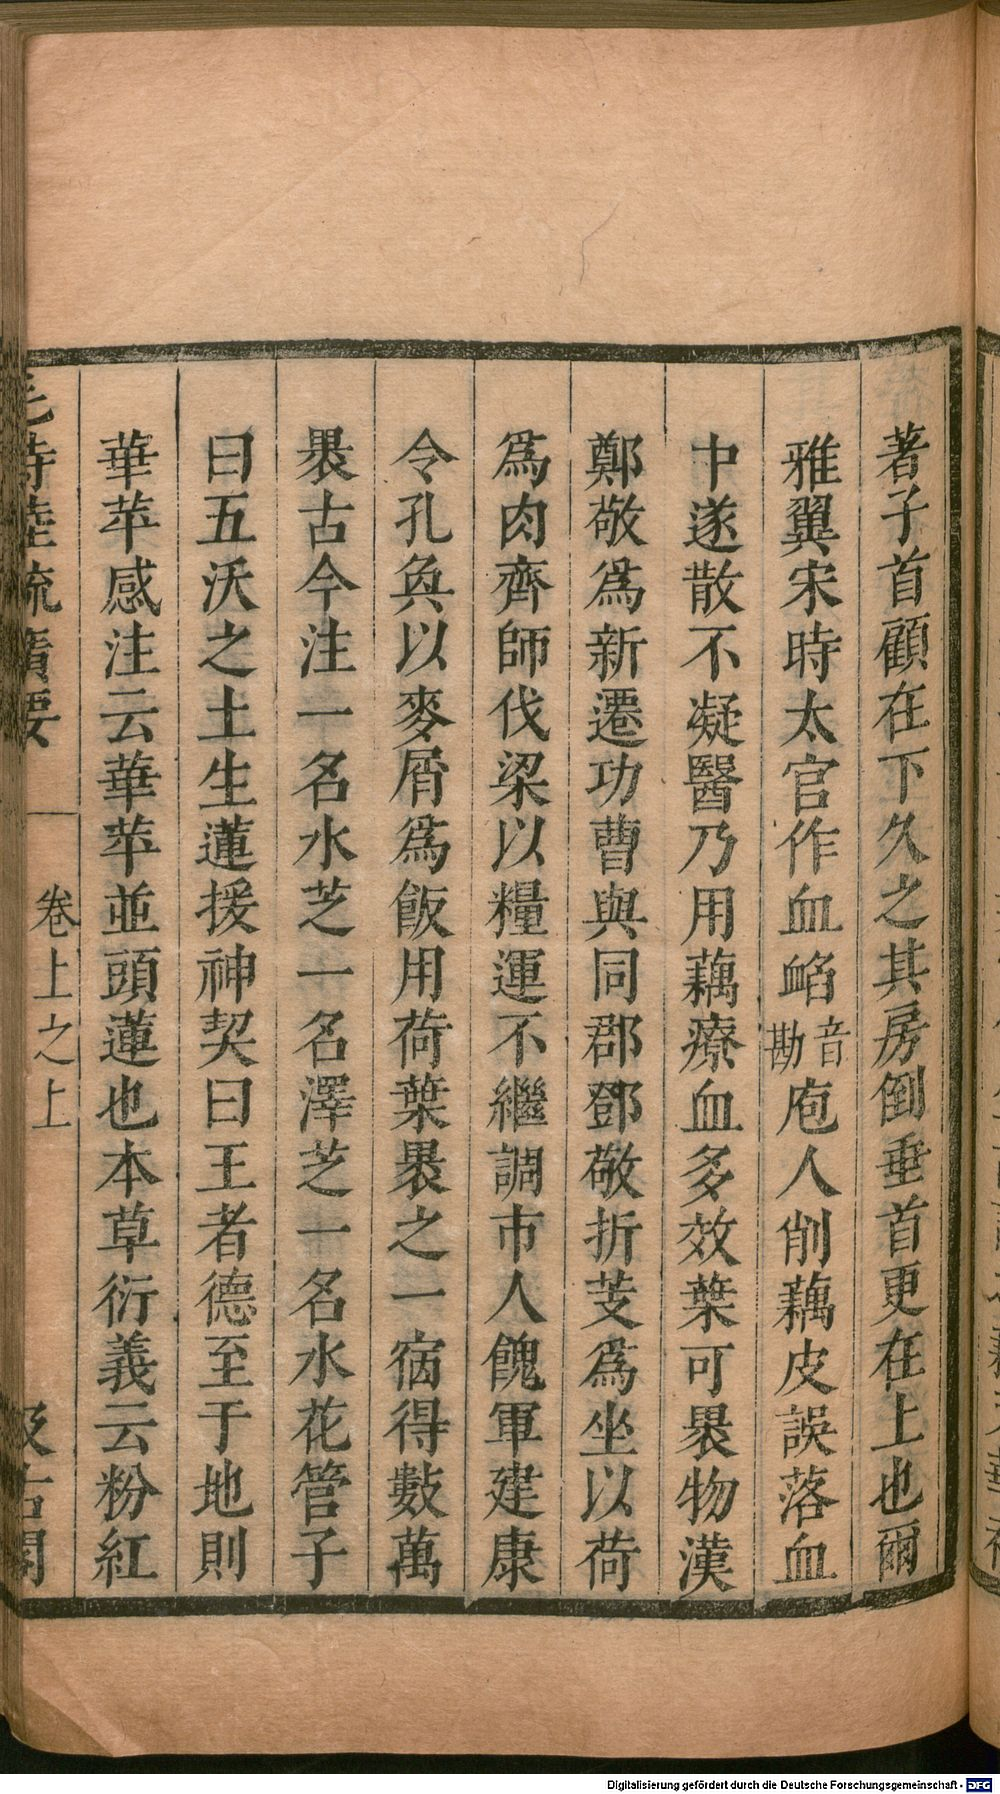 著子首顧在下久之其房倒垂首更在上也爾
雅翼宋時太官作血䘓音勘庖人削藕皮誤落血
中遂散不凝醫乃用藕療血多效葉可褁物漢
鄭敬爲新遷功曹與同郡鄧敬折芰爲坐以荷
爲肉齊師伐梁以糧運不繼調市人餽軍建康
令孔奐以麥屑爲飯用荷葉褁之一宿得數萬
褁古今注一名水芝一名澤芝一名水花管子
曰五沃之土生蓮援神契曰王者德至于地則
華苹感注云華苹並頭蓮也本草衍義云粉紅
毛詩陸疏廣要
卷上之上
汲古閣
Digitalisierung gefördert durch die Deutsche Forschungsgemeinschaft - DFG